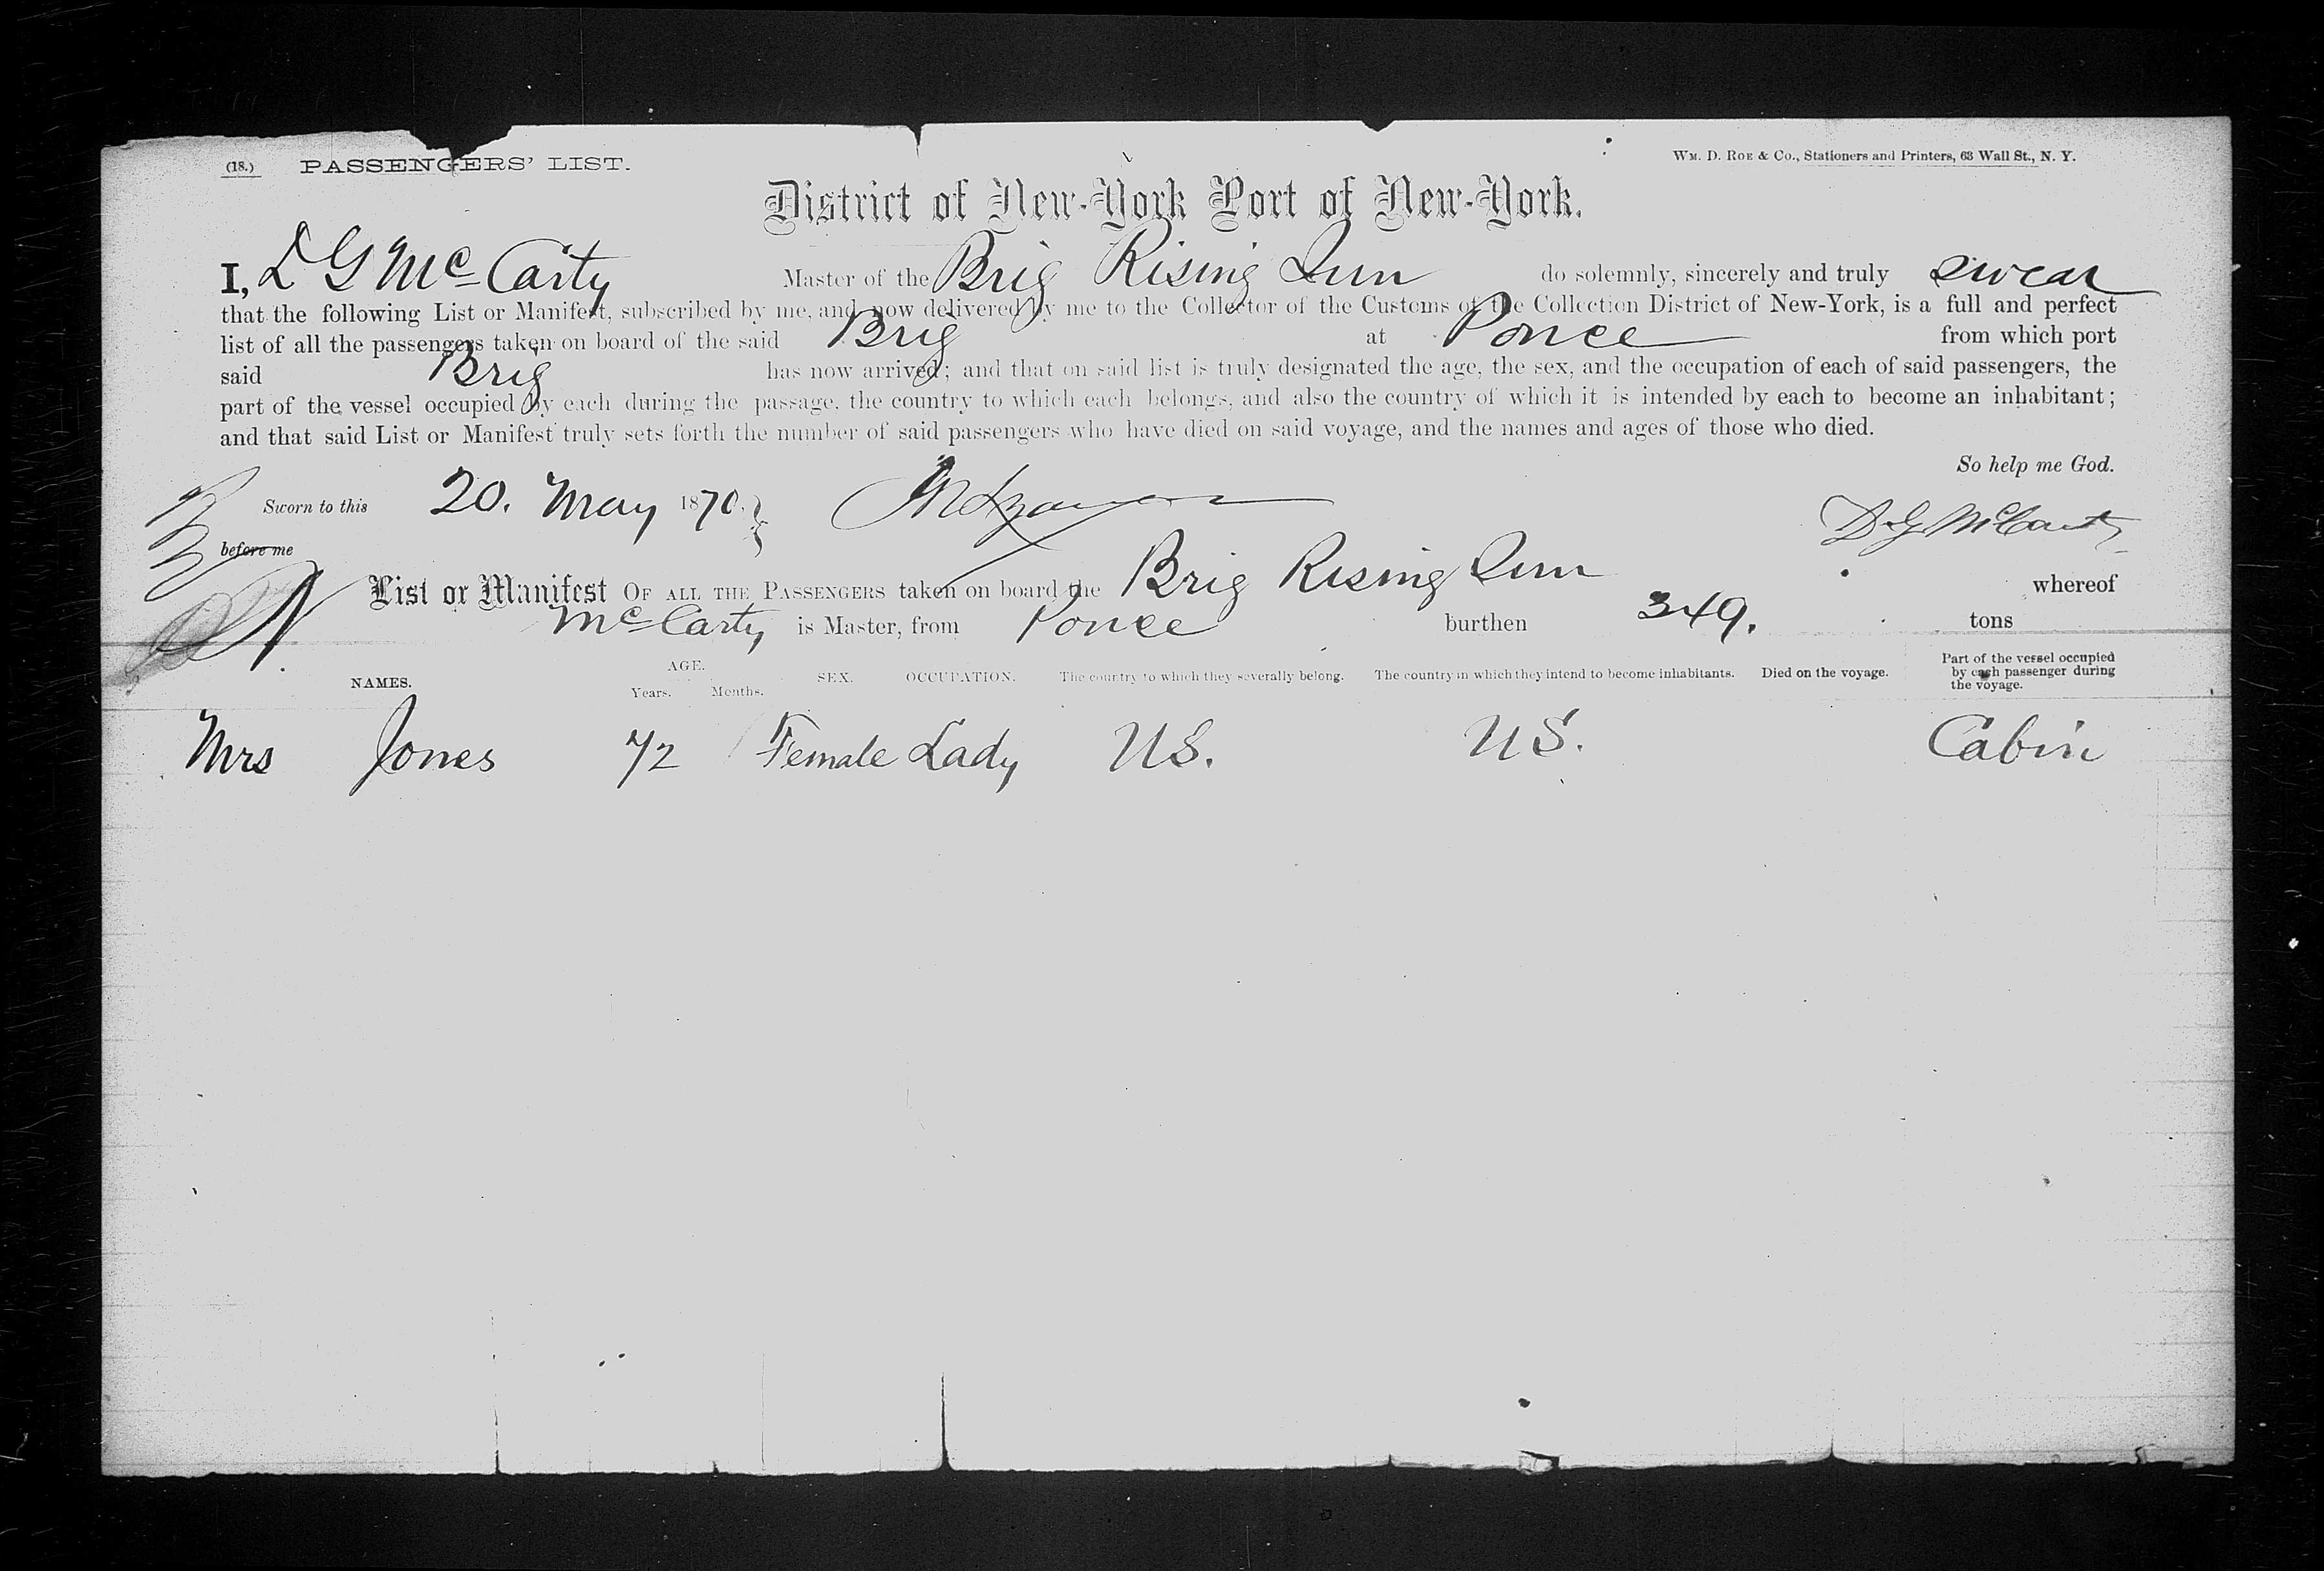 (18.) PASSENGERS' LIST. WM. D. ROE & CO., Stationers and Printers, 63 Wall St., N. Y.
District of New-York Port of New-York.
I, D G McCarty Master of the Brig Rising Sun do solemnly, sincerely and truly swear
that the following List or Manifest, subscribed by me, and now delivered by me to the Collector of the Customs of the Collection District of New-York, is a full and perfect
list of all the passengers taken on board of the said Brig at Ponce from which port
said Brig has now arrived; and that on said list is truly designated the age, the sex, and the occupation of each of said passengers, the
part of the vessel occupied by each during the passage, the country to which each belongs, and also the country of which it is intended by each to become an inhabitant;
and that said List or Manifest truly sets forth the number of said passengers who have died on said voyage, and the names and ages of those who died.
So help me God.
Sworn to this 20. May 1870.
D G McCarty
before me
List or Manifest OF ALL THE PASSENGERS taken on board the Brig Rising Sun whereof
McCarty is Master, from Ponce burthen 349. tons
NAMES. AGE. Years. Months. SEX. OCCUPATION. The country to which they severally belong. The country in which they intend to become inhabitants. Died on the voyage. Part of the vessel occupied by each passenger during the voyage.
Mrs Jones 72 Female Lady US. US. Cabin